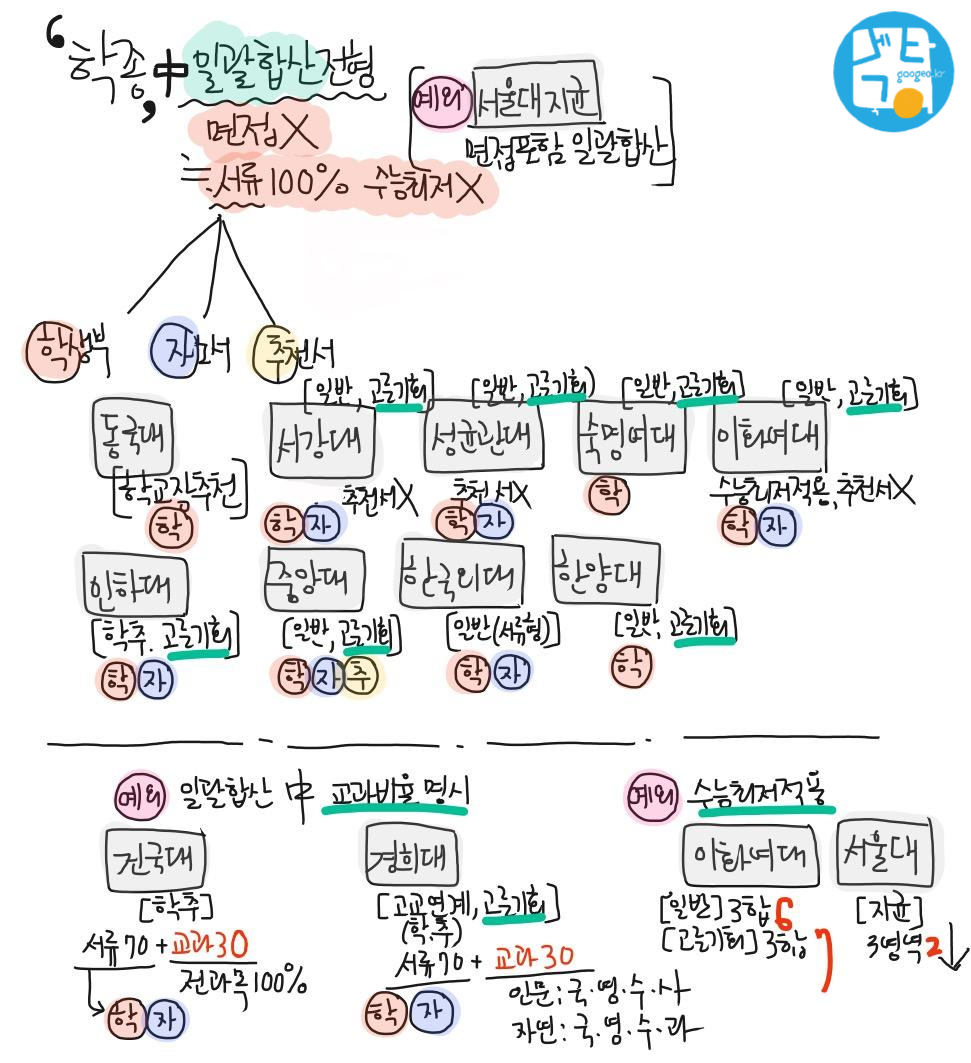 '학종' + 일괄합산전형
[예외 서울대 지균
면접포함 일괄합산]
면접X
≒ 서류100% 수능최저X
goageo.kr
학생부 자소서 추천서
[일반, 고른기회] [일반, 고른기회) [일반, 고른기회] [일반, 고른기회]
동국대 서강대 성균관대 숙명여대 이화여대
[학교장추천] 추천서X 추천서X 수능최저적용, 추천서X
학 학 자 학 자 학 학 자
인하대 중앙대 한국외대 한양대
[학추. 고른기회] [일반, 고른기회] [일반(서류형)] [일반, 고른기회]
학 자 학 자 추 학 자 학
예외 일괄합산 中 교과비율 명시
건국대 경희대
[학추] [고교연계, 고른기회]
(학.추)
서류70 + 교과30 서류70 + 교과30
전과목100% 인문:국·영·수·사
학 자 학 자 자연:국·영·수·과
예외 수능최저적용
이화여대 서울대
[일반] 3합6 [지균]
[고른기회] 3합7 3영역2↓